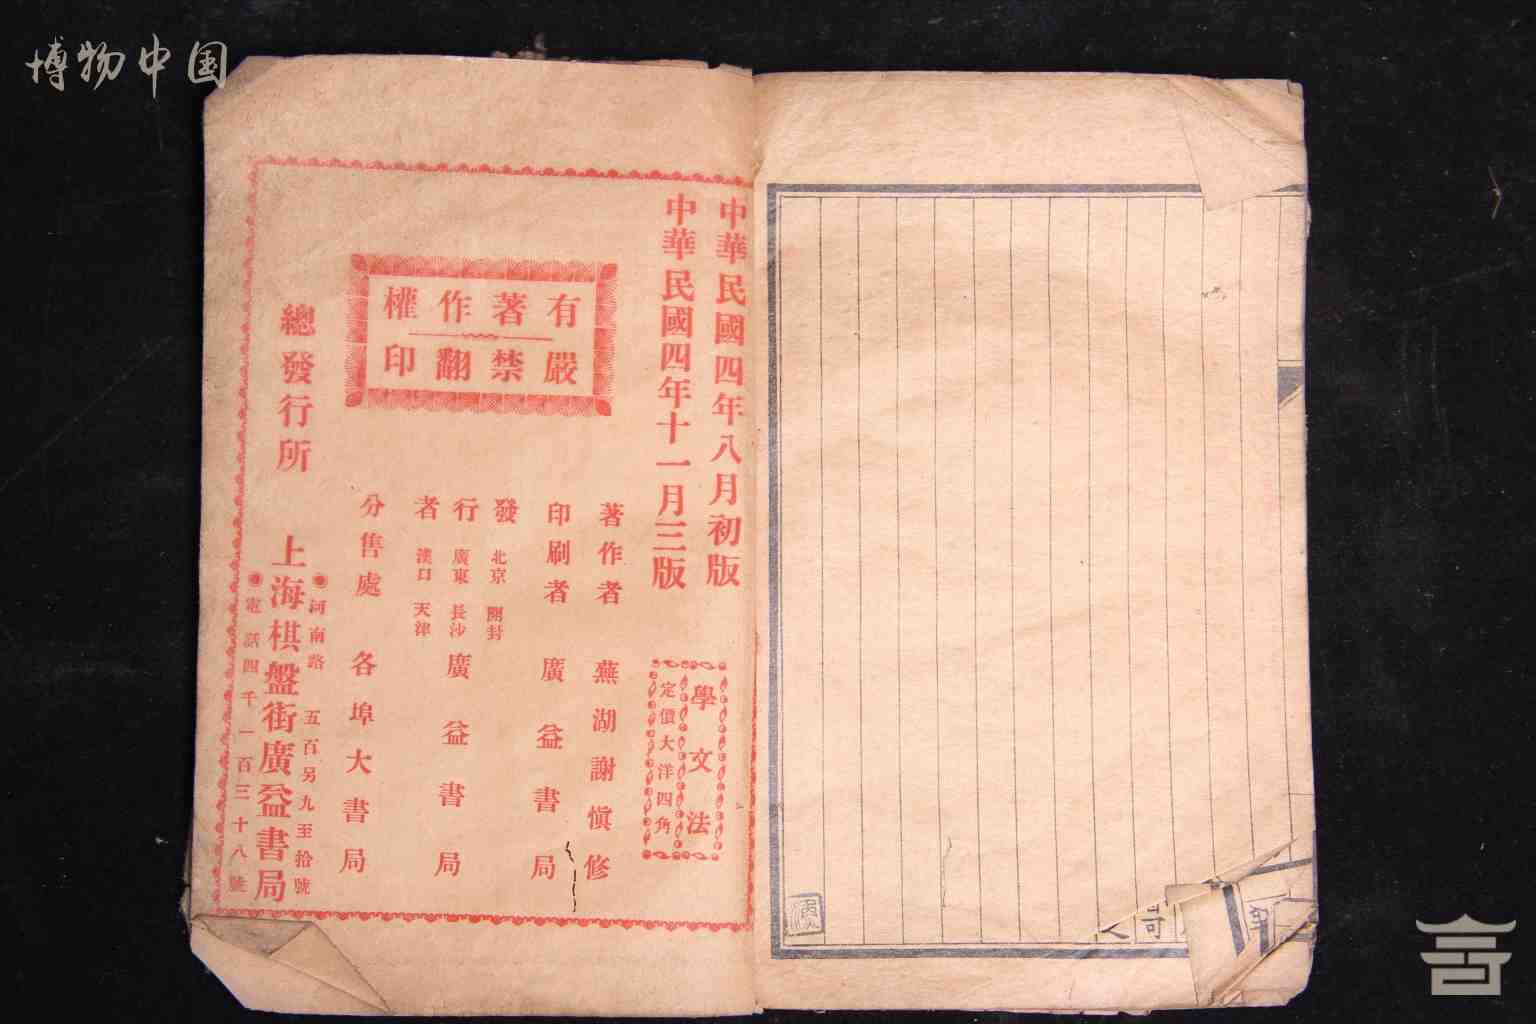 博物中国
中華民國四年八月初版
中華民國四年十一月三版
學文法
定價大洋四角
有著作權
嚴禁翻印
著作者 蕪湖謝慎修
印刷者 廣益書局
發行者 廣益書局
北京 開封
廣東 長沙
漢口 天津
分售處 各埠大書局
總發行所 上海棋盤街廣益書局
河南路 五百另九至拾號
電話四千一百三十八號